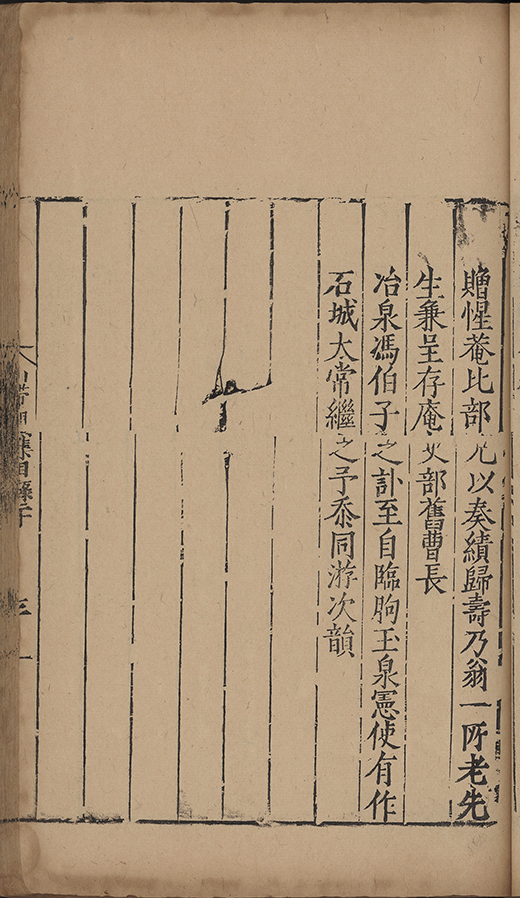 贈惺菴比部兄以奏績歸壽乃翁一所老先
生兼呈存庵吏部舊曹長
冶泉馮伯子之訃至自臨朐玉泉憲使有作
石城太常繼之予忝同游次韻